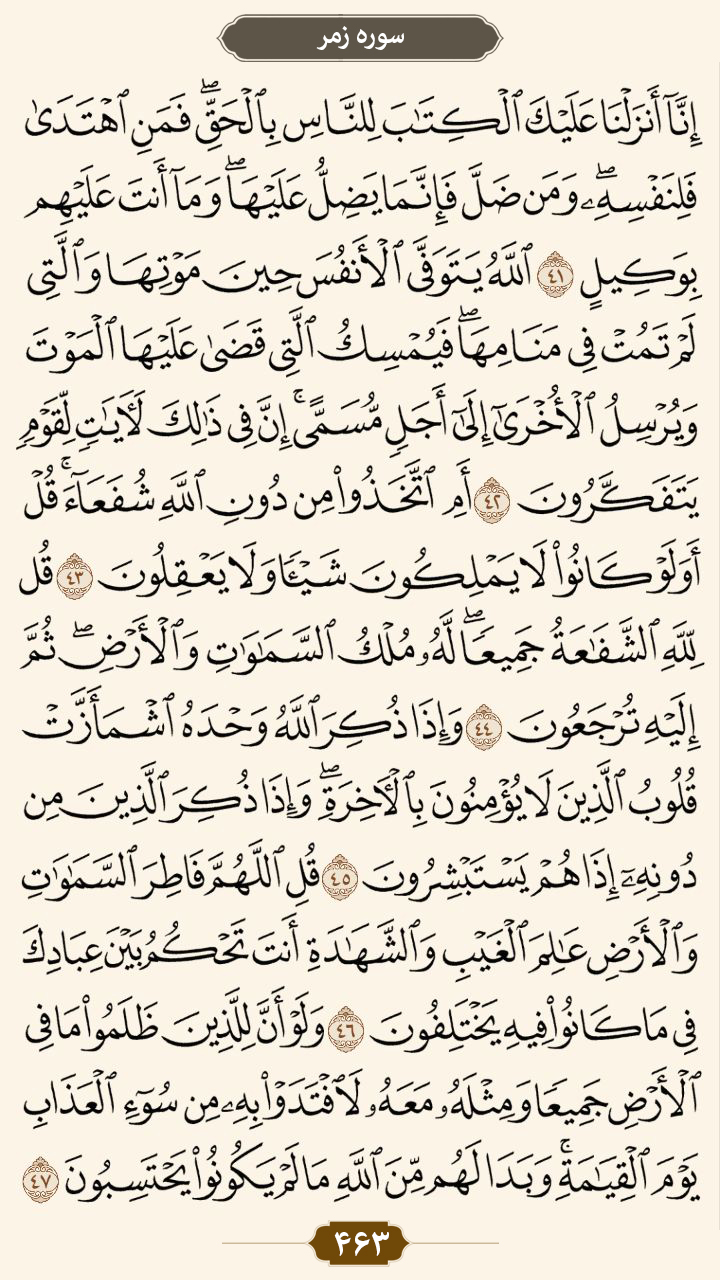 سوره زمر
إِنَّآ أَنزَلْنَا عَلَيْكَ ٱلْكِتَٰبَ لِلنَّاسِ بِٱلْحَقِّۖ فَمَنِ ٱهْتَدَىٰ
فَلِنَفْسِهِۦۖ وَمَن ضَلَّ فَإِنَّمَا يَضِلُّ عَلَيْهَاۖ وَمَآ أَنتَ عَلَيْهِم
بِوَكِيلٍ ٤١ ٱللَّهُ يَتَوَفَّى ٱلْأَنفُسَ حِينَ مَوْتِهَا وَٱلَّتِى
لَمْ تَمُتْ فِى مَنَامِهَاۖ فَيُمْسِكُ ٱلَّتِى قَضَىٰ عَلَيْهَا ٱلْمَوْتَ
وَيُرْسِلُ ٱلْأُخْرَىٰٓ إِلَىٰٓ أَجَلٍ مُّسَمًّىۚ إِنَّ فِى ذَٰلِكَ لَءَايَٰتٍ لِّقَوْمٍ
يَتَفَكَّرُونَ ٤٢ أَمِ ٱتَّخَذُوا۟ مِن دُونِ ٱللَّهِ شُفَعَآءَۚ قُلْ
أَوَلَوْ كَانُوا۟ لَا يَمْلِكُونَ شَيْـًٔا وَلَا يَعْقِلُونَ ٤٣ قُل
لِّلَّهِ ٱلشَّفَٰعَةُ جَمِيعًاۖ لَّهُۥ مُلْكُ ٱلسَّمَٰوَٰتِ وَٱلْأَرْضِۖ ثُمَّ
إِلَيْهِ تُرْجَعُونَ ٤٤ وَإِذَا ذُكِرَ ٱللَّهُ وَحْدَهُ ٱشْمَأَزَّتْ
قُلُوبُ ٱلَّذِينَ لَا يُؤْمِنُونَ بِٱلْءَاخِرَةِۖ وَإِذَا ذُكِرَ ٱلَّذِينَ مِن
دُونِهِۦٓ إِذَا هُمْ يَسْتَبْشِرُونَ ٤٥ قُلِ ٱللَّهُمَّ فَاطِرَ ٱلسَّمَٰوَٰتِ
وَٱلْأَرْضِ عَٰلِمَ ٱلْغَيْبِ وَٱلشَّهَٰدَةِ أَنتَ تَحْكُمُ بَيْنَ عِبَادِكَ
فِى مَا كَانُوا۟ فِيهِ يَخْتَلِفُونَ ٤٦ وَلَوْ أَنَّ لِلَّذِينَ ظَلَمُوا۟ مَا فِى
ٱلْأَرْضِ جَمِيعًا وَمِثْلَهُۥ مَعَهُۥ لَٱفْتَدَوْا۟ بِهِۦ مِن سُوٓءِ ٱلْعَذَابِ
يَوْمَ ٱلْقِيَٰمَةِۚ وَبَدَا لَهُم مِّنَ ٱللَّهِ مَا لَمْ يَكُونُوا۟ يَحْتَسِبُونَ ٤٧
۴۶۳